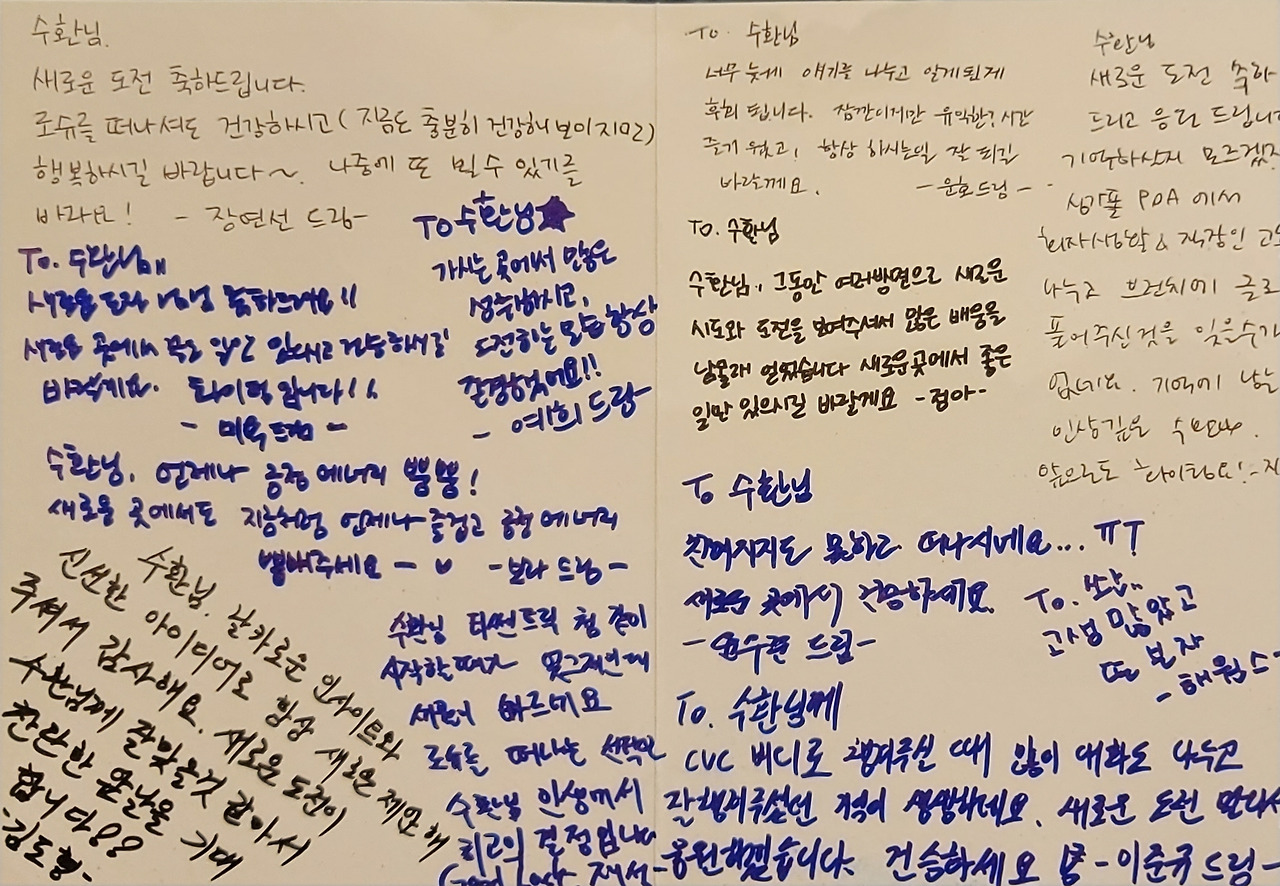 수환님.
새로운 도전 축하드립니다.
로슈를 떠나셔도 건강하시고 (지금도 충분히 건강해보이지만)
행복하시길 바랍니다~. 나중에 또 뵐 수 있기를
바라요! - 장연선 드림-
To. 수환님
새로운 도전 축하드려요!!
새로운 곳에서 건승하시길
바랄게요. 화이팅입니다!!
- 미옥드림 -
To 수환님
가시는 곳에서 많은
성취하시고,
도전하는 모습 항상
존경했어요!!
- 예희 드림-
수환님, 언제나 긍정 에너지 뿜뿜!
새로운 곳에서도 지금처럼 언제나 즐겁고 긍정 에너지
뿜뿜해주세요 - -보라 드림-
수환님. 날카로운 인사이트와
신선한 아이디어로 항상 새로운 제안해
주셔서 감사해요. 새로운 도전이
수환님께 잘맞을것 같아서
찬란한 훗날을 기대
합니다!
-김도형-
수환님 타센트릭 첨 같이
시작할때가 엊그제인데
세월이 빠르네요
로슈를 떠나는 선택은
수환님 인생에서
최고의 결정입니다
Good Luck 재선-
To. 수환님
너무 늦게 얘기를 나누고 알게된게
후회 됩니다. 잠깐이지만 유익한? 시간
즐거웠고, 항상 하시는일 잘 되길
바랄게요. -윤호드림-
To. 수환님
수환님, 그동안 여러방면으로 새로운
시도와 도전을 보여주셔서 많은 배움을
남몰래 얻었습니다 새로운곳에서 좋은
일만 있으시길 바랄게요 -정아-
To 수환님
친해지지도 못하고 떠나시네요... ㅠㅜ
새로운 곳에서 건승하세요.
-원수연 드림-
To. 수환님께
CVC 버디로 챙겨주실 때 많이 대화도 나누고
잘챙겨주셨던 기억이 생생하네요. 새로운 도전 만나서
응원하겠습니다. 건승하세요 -이준규드림-
수환님
새로운 도전 축하
드리고 응원 드립니다
기억하실지 모르겠지
싱가폴 PDA 에서
회사생활 & 직장인 고
나누고 브런치에 글로
풀어주신것을 잊을수가
없네요. 기억에 남는
인상깊은
앞으로도 화이팅요!
To.
고생 많았고
또 보자
-해원